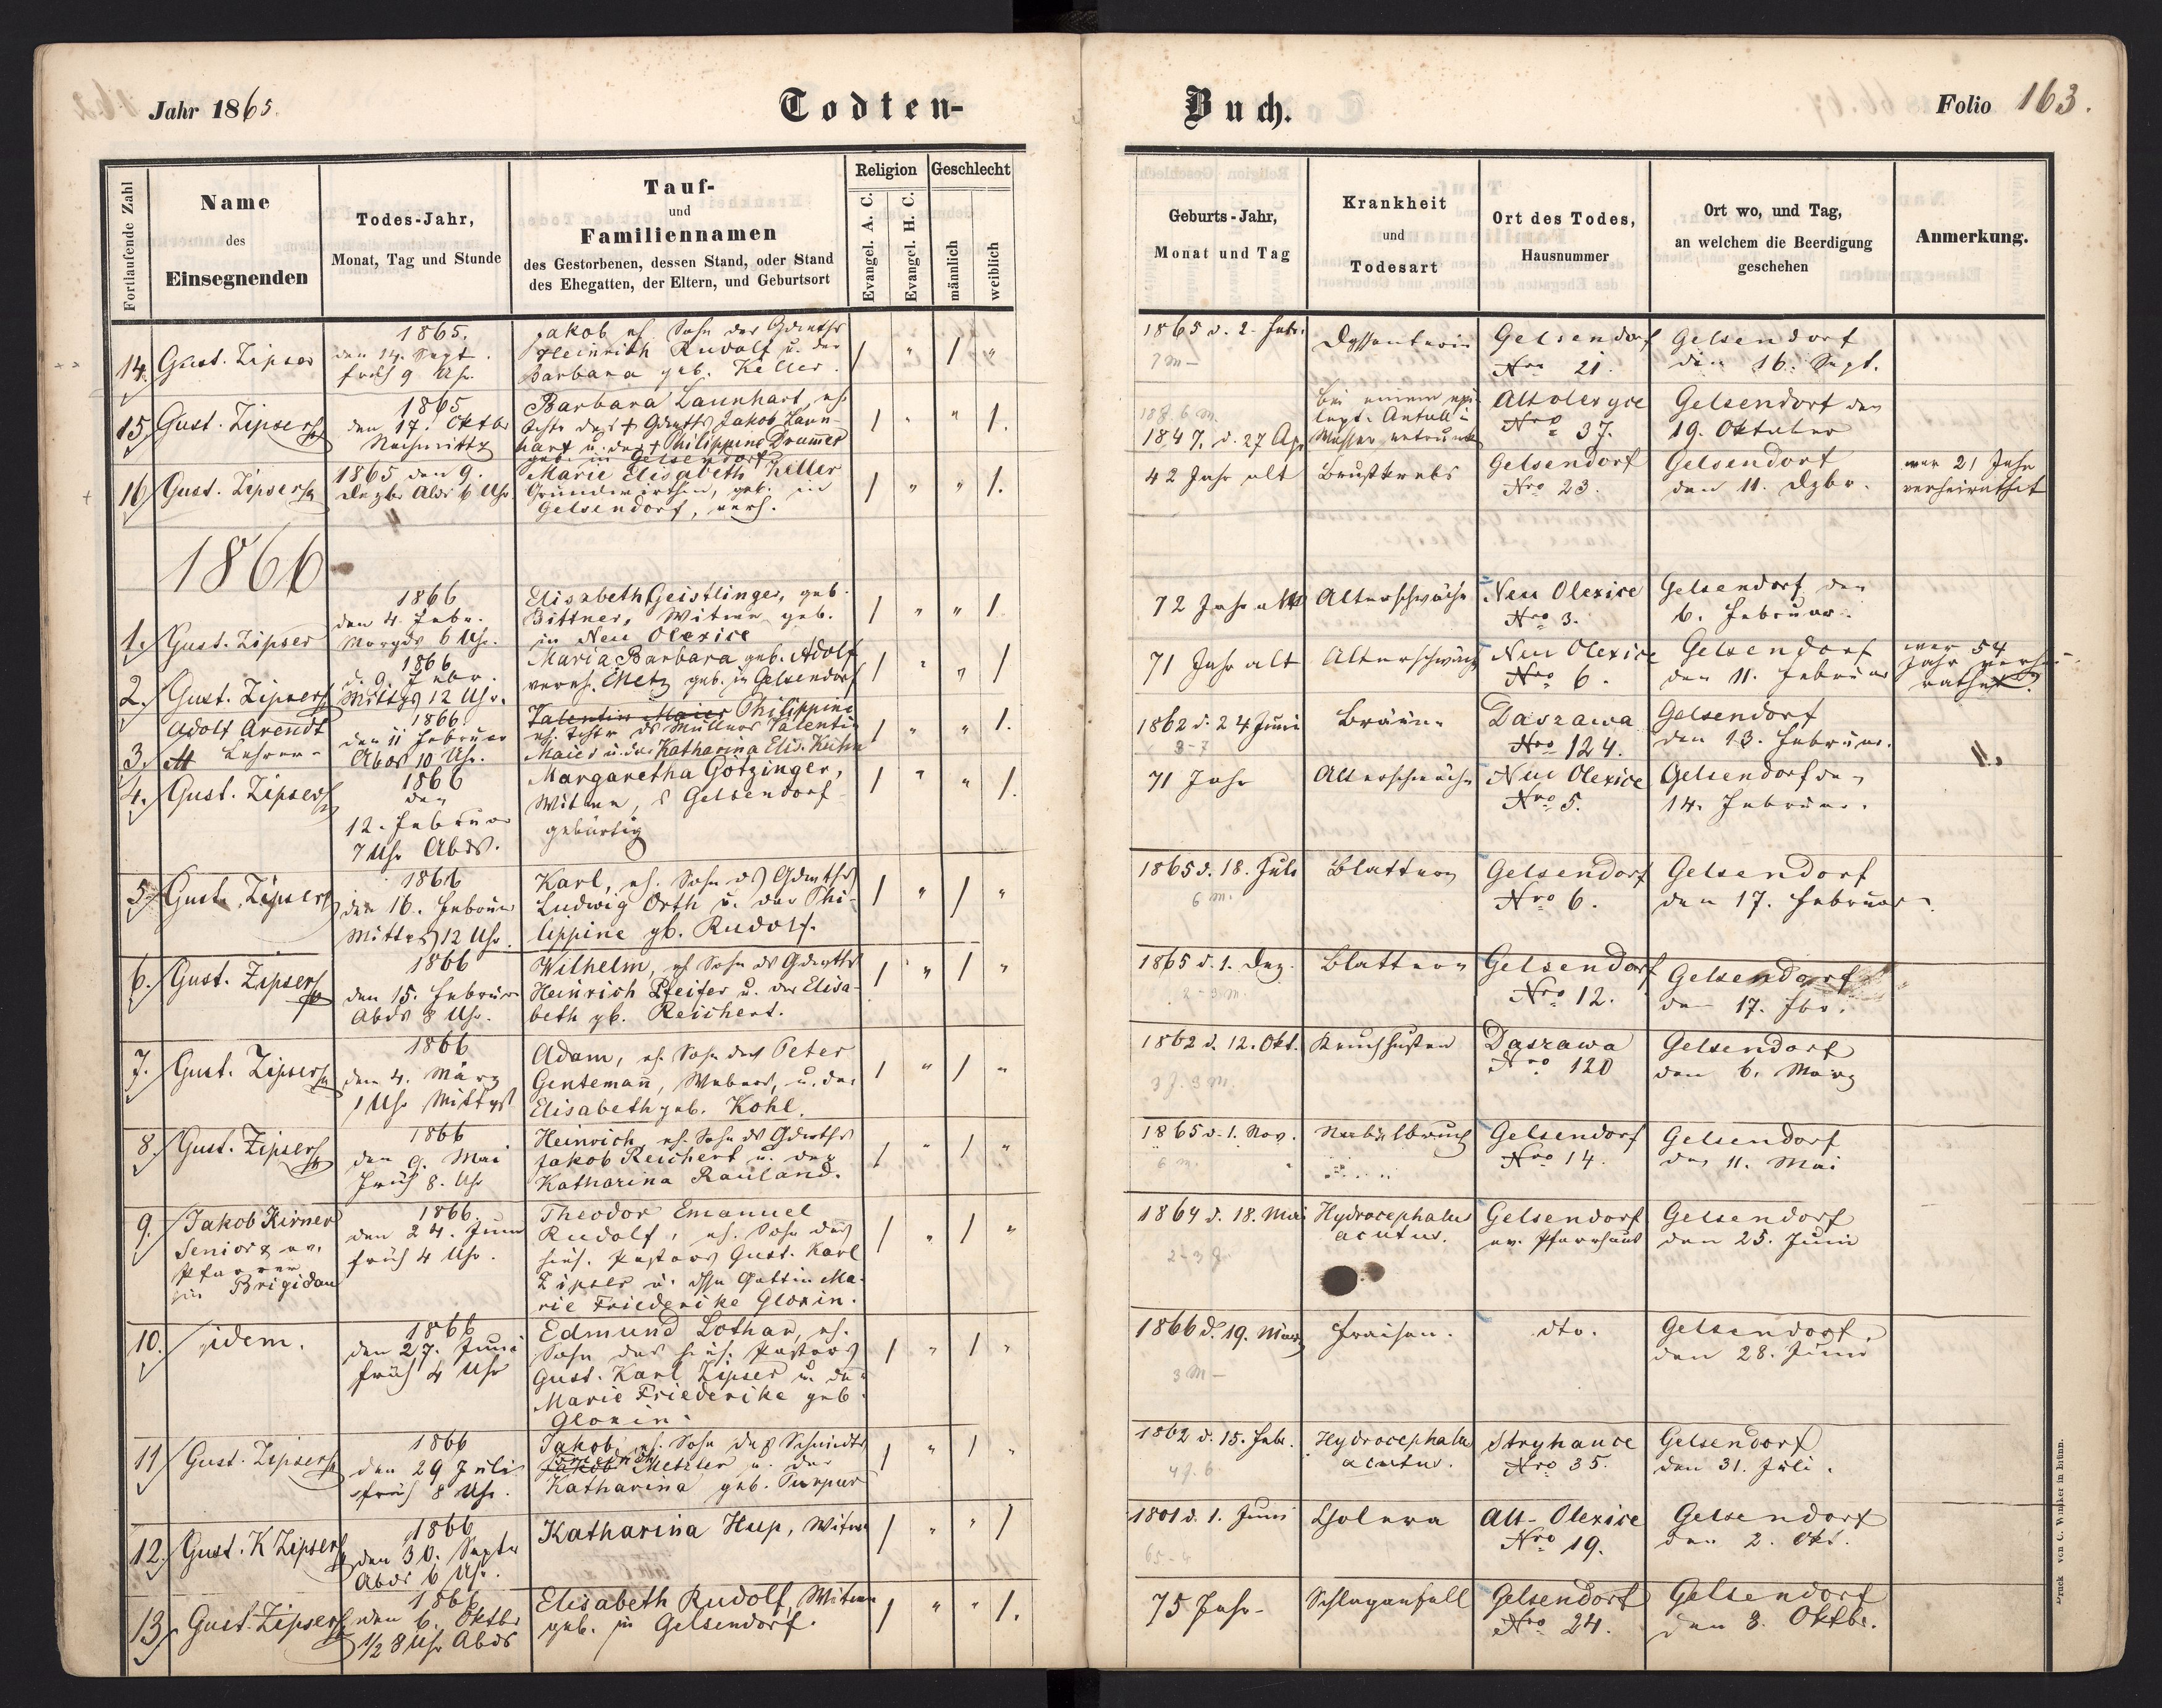 Jahr 1865.
Todten-
Buch.
Folio 163.
Fortlaufende Zahl
Name
des
Einsegnenden
Todes-Jahr,
Monat, Tag und Stunde
Tauf-
und
Familiennamen
des Gestorbenen, dessen Stand, oder Stand
des Ehegatten, der Eltern, und Geburtsort
Religion
Evangel. A. C.
Evangel. H. C.
Geschlecht
männlich
weiblich
Geburts-Jahr,
Monat und Tag
Krankheit
und
Todesart
Ort des Todes,
Hausnummer
Ort wo, und Tag,
an welchem die Beerdigung
geschehen
Anmerkung.
14.
Gust. Zipser
1865.
den 14. Sept.
früh 9 Uhr
Jakob eh. Sohn des Gdwrths
Heinrich Rudolf u. der
Barbara geb. Keller.
/ " / "
1865 d. 2. Febr.
7 m -
Dyssenterie
Gelsendorf
Nro 21.
Gelsendorf
den 16. Sept.
15.
Gust. Zipser
1865
den 17. Oktbr
Nachmittg
Barbara Launhart, eh.
Tochtr des + Gdwths Jakob Laun-
hart u. der + Philippine Drumer
geb. in Gelsendorf
/ " " /.
18 J. 6 m.
1847. d. 27 Ap.
bei einem epi-
lept. Anfall i
Wasser ertrunk
Altolexyce
Nro 37.
Gelsendorf den
19. Oktober
16
Gust. Zipser
1865 den 9.
Dezbr Abds 6 Uhr.
Marie Elisabeth Keller
Grundwirthin, geb. in
Gelsendorf, verh.
/ " " /.
42 Jahr alt
Brustkrebs
Gelsendorf
Nro 23.
Gelsendorf
den 11. Dzbr.
war 21 Jahr
verheirathet
4
1866
1.
Gust. Zipser
1866
den 4. Febr.
Morgds 6 Uhr.
Elisabeth Geistlinger, geb.
Bittner, Witwe geb.
in Neu Olexice
/ " " /
72 Jahr alt
Altersschwäche
Neu Olexice
Nro 3.
Gelsendorf den
6. Februar.
2.
Gust. Zipser
1866
d. 9. Febr.
Mittgs 12 Uhr.
Maria Barbara geb. Adolf
vereh. Metz geb. in Gelsendorf
/ " " /
71 Jahr alt
Altersschwäch
Neu Olexice
Nro 6.
Gelsendorf
den 11. Februar
war 54
Jahr verhei-
rathet.
3.
Adolf Arendt
Lehrer
1866
den 11 Februar
Abds 10 Uhr.
Valentin Maier Philippine
eh. Tochtr ds Müllers Valentin
Maier u. der Katharina Elis. Kühn
/ " " /.
1862 d. 24 Juni
3-7
Bräune
Daszawa
Nro 124.
Gelsendorf
den 13. Februar.
4.
Gust. Zipser
1866
den
12. Februar
7 Uhr Abds.
Margaretha Götzinger,
Witwe, Gelsendorf
gebürtig
/ " " /.
71 Jahr
Altersschwäche
Neu Olexice
Nro 5.
Gelsendorf den
14. Februar.
5.
Gust. Zipser
1866
den 16. Februar
Mittgs 12 Uhr.
Karl, eh. Sohn ds Gdwths
Ludwig Orth u. der Phi-
lippine gb. Rudolf.
/ " / "
1865 d. 18. Juli
6 m.
Blattern
Gelsendorf
Nro 6.
Gelsendorf
den 17. Februar
6.
Gust. Zipser
1866
den 15. Februar
Abds 8 Uhr.
Wilhelm, eh Sohn ds Gdwths
Heinrich Pfeifer u. der Elisa-
beth gb. Reichert.
/ " / "
1865 d. 1. Dez.
2-3 m.
Blattern
Gelsendorf
Nro 12.
Gelsendorf
den 17. Fbr.
7.
Gust. Zipser
1866
den 4. März
1 Uhr Mittgs
Adam, eh. Sohn des Peter
Gentemañ, Webers, u. der
Elisabeth geb. Kohl.
/ " / "
1862 d. 12. Okt.
3 J. 3 m.
Keuchhusten
Daszawa
Nro 120
Gelsendorf
den 6. März
8.
Gust. Zipser
1866
den 9. Mai
Früh 8. Uhr
Heinrich, eh. Sohn ds Gdwths
Jakob Reichert u. der
Katharina Rauland.
/ " / "
1865 d. 1. Nov.
6 m.
Nabelbruch
Gelsendorf
Nro 14.
Gelsendorf
den 11. Mai
9.
Jakob Hirner
Senior & ev.
Pfarrer
in Brigidau
1866.
den 24. Juni
früh 4 Uhr.
Theodor Emanuel
Rudolf, eh. Sohn des
hies. Pastors Gust. Karl
Zipser u. dssn Gattin Ma-
rie Friederike Gloxin.
/ " / "
1864 d. 18. Mai
2-3 J.
Hydrocephalus
acutus.
Gelsendorf
ev. Pfarrhaus
Gelsendorf
den 25. Juni
10.
idem.
1866
den 27. Juni
früh 4 Uhr
Edmund Lothar, eh.
Sohn des hies. Pastors
Gust. Karl Zipser u. der
Marie Friederike geb.
Gloxin.
/ " / "
1866 d. 19. März
3 M -
Fraisen.
dto.
Gelsendorf.
den 28. Juni
11
Gust. Zipser
1866
den 29 Juli
früh 8 Uhr.
Jakob, eh. Sohn des Schmidts
Jakob Metzler u. der
Katharina geb. Purpur
/ " / "
1862 d. 15. Febr.
4 J. 6.
Hydrocephalus
acutus.
Stryhance
Nro 35.
Gelsendorf
den 31. Juli.
12.
Gust. K Zipser
1866
den 30. Septr
Abds 6 Uhr.
Katharina Hup, Witwe
/ " " /
1801 d. 1. Juni
65-4
Cholera
Alt-Olexice
Nro 19.
Gelsendorf
den 2. Okt.
13.
Gust. Zipser
1866
den 6. Oktbr
1/2 8 Uhr Abds
Elisabeth Rudolf, Witwe
geb. in Gelsendorf.
/ " " /.
75 Jahr-
Schlaganfall
Gelsendorf
Nro 24.
Gelsendorf
den 8. Oktbr.
Druck von C. Winiker in Brünn.